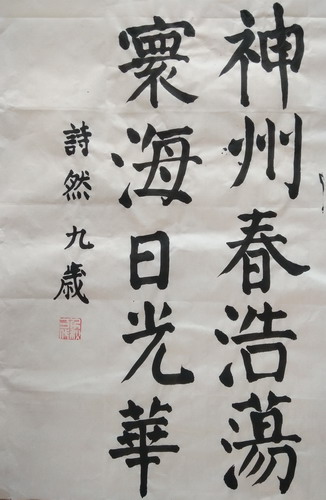 神州春浩蕩
寰海日光華
詩然九歲